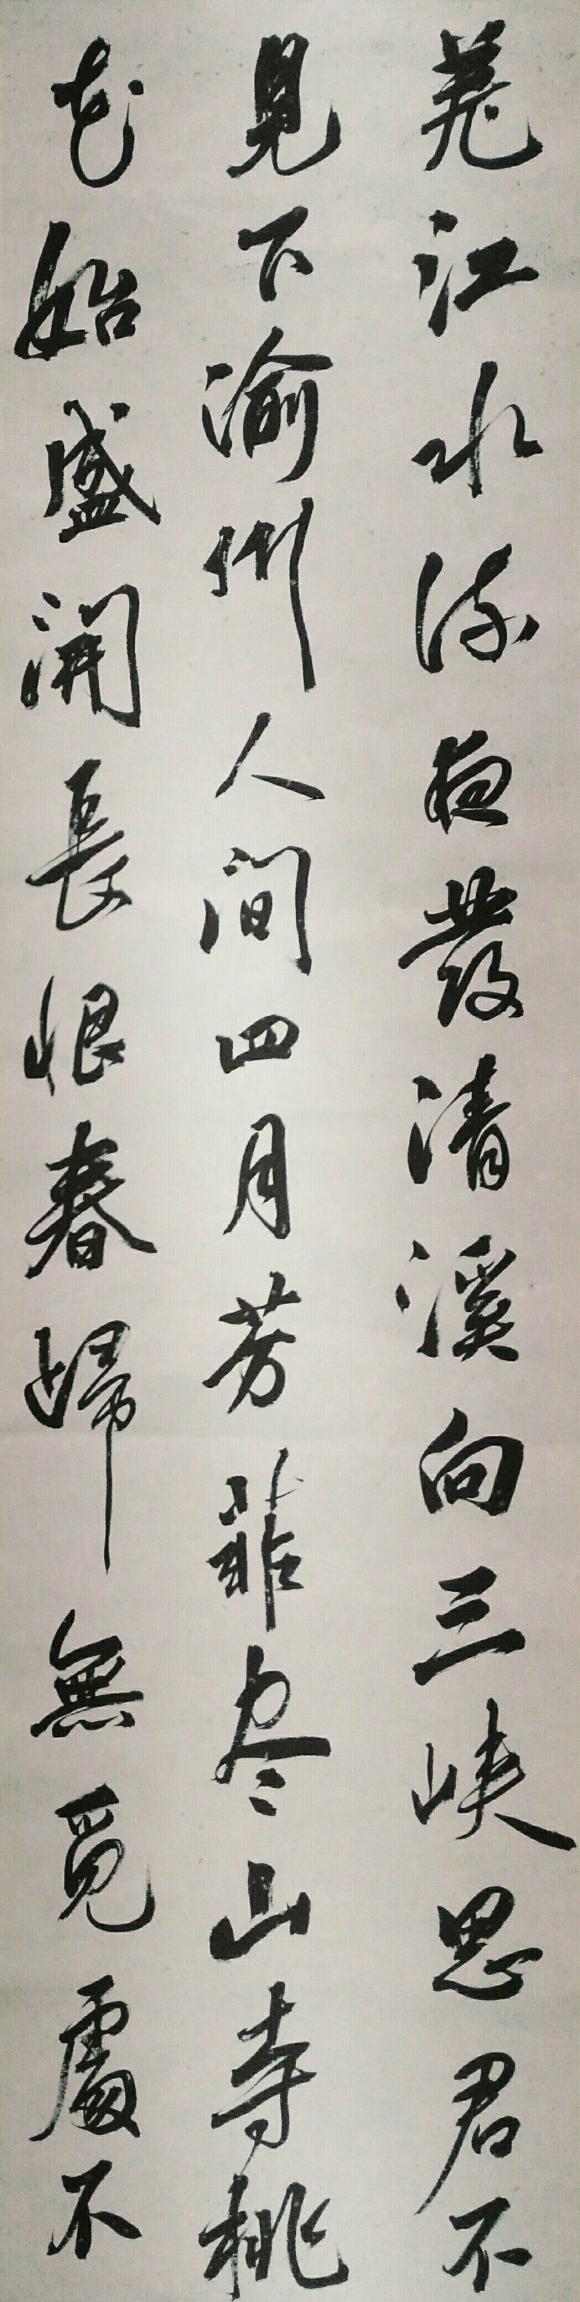 羌江水流夜發清溪向三峽思君不
見下渝州人間四月芳菲尽山寺桃
花始盛開長恨春歸無覓處不